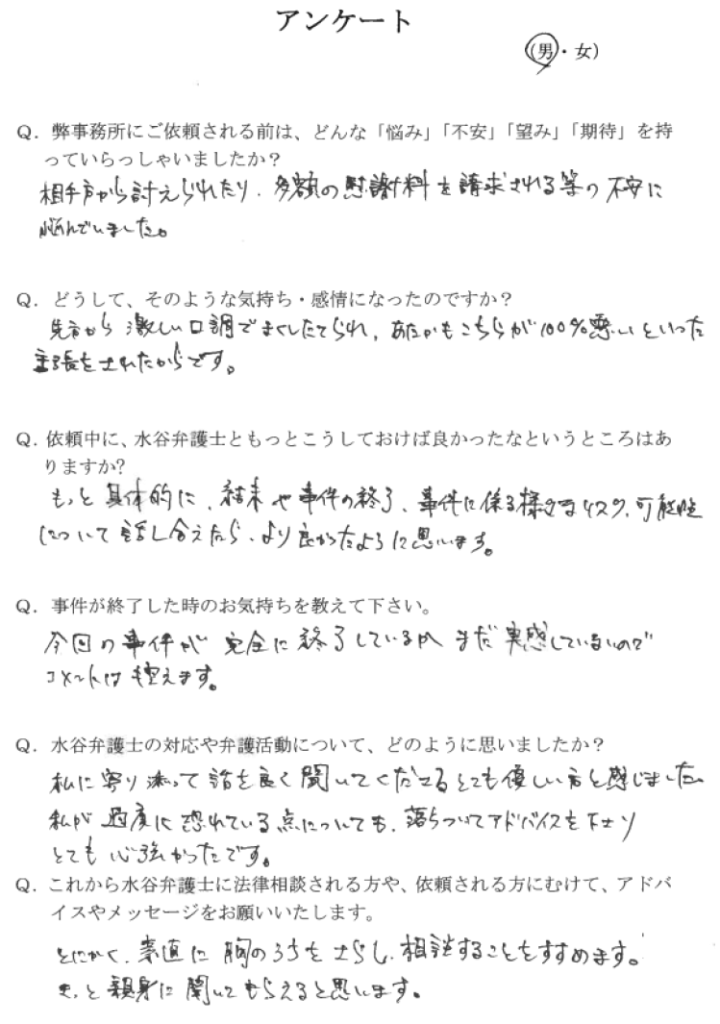 アンケート
(男・女)
Q．弊事務所にご依頼される前は、どんな「悩み」「不安」「望み」「期待」を持
っていらっしゃいましたか？
相手方から訴えられたり、多額の慰謝料を請求される等の不安に
悩んでいました。
Q．どうして、そのような気持ち・感情になったのですか？
先方から激しい口調でまくしたてられ、あたかもこちらが100％悪いといった
主張をされたからです。
Q．依頼中に、水谷弁護士ともっとこうしておけば良かったなというところはあ
りますか?
もっと具体的に、結末や事件の終了、事件に係る様々なリスク、可能性
について話し合えたら、より良かったように思います。
Q．事件が終了した時のお気持ちを教えて下さい。
今回の事件が完全に終了しているか、まだ実感していないので
コメントは控えます。
Q．水谷弁護士の対応や弁護活動について、どのように思いましたか？
私に寄り添って話を良く聞いてくださるとても優しい方と感じました。
私が過度に恐れている点についても、落ちついてアドバイスを下さり
とても心強かったです。
Q．これから水谷弁護士に法律相談される方や、依頼される方にむけて、アドバ
イスやメッセージをお願いいたします。
とにかく、素直に胸のうちをさらし、相談することをすすめます。
きっと親身に聞いてもらえると思います。